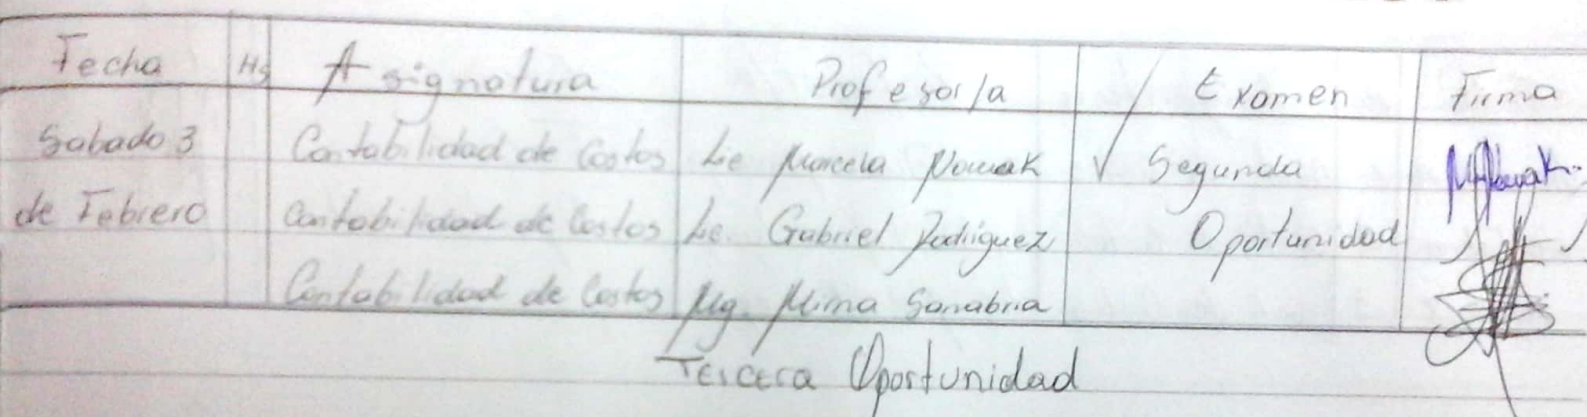 Fecha Hs Asignatura Profesor/a Examen Firma
Sabado 3 Contabilidad de Costos Lic Marcela Nowak √ Segunda MNowak
de Febrero Contabilidad de Costos Lic. Gabriel Rodriguez Oportunidad
Contabilidad de Costos Mg. Mirna Sanabria
Tercera Oportunidad